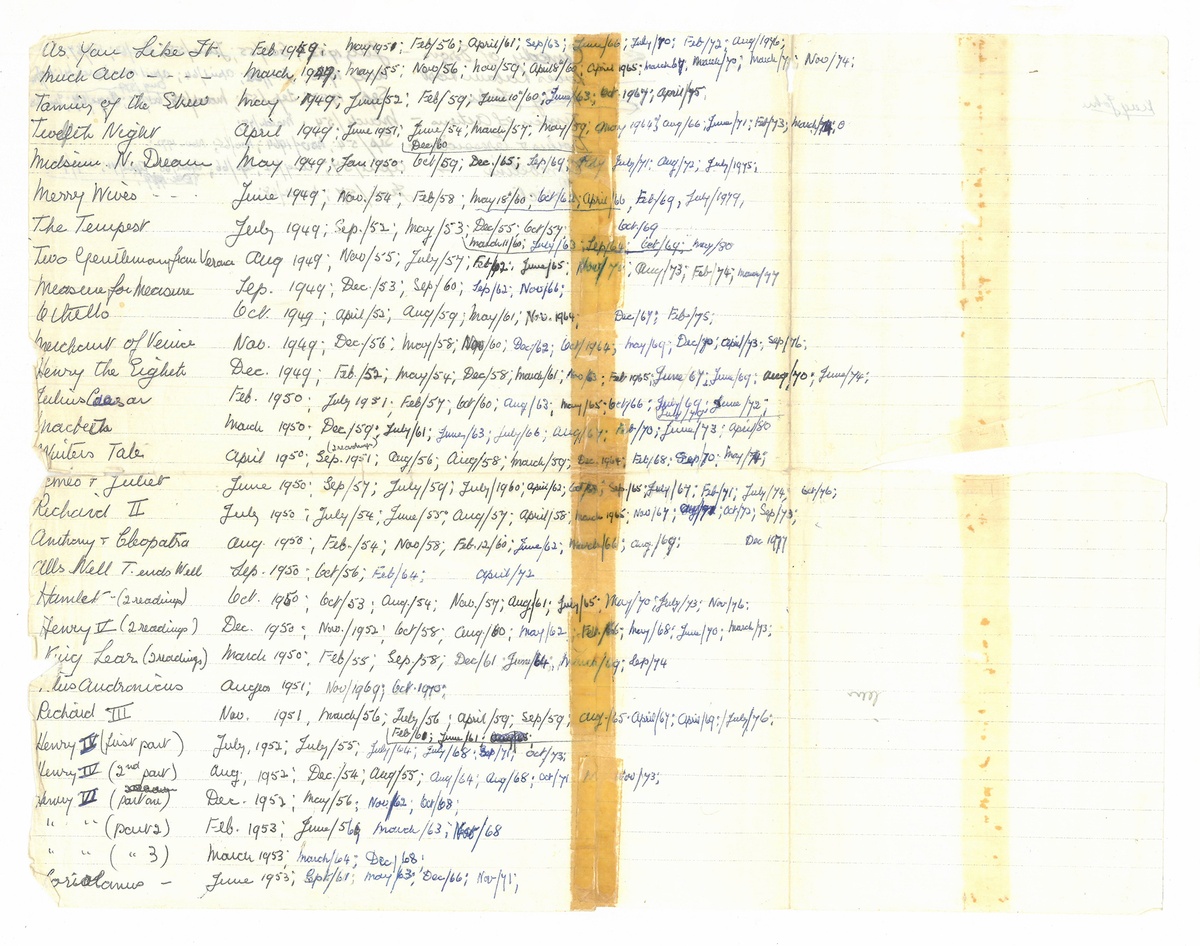 As You Like It. Feb 1949; May 1951; Feb/56; April/61; Sep/63; June/66; July/70; Feb/72; Aug/1976;
Much Ado - - March, 1949; May/55; Nov/56; Nov/59; April 8th/60; April 1965; March/67; March/70; March/71; Nov/74;
Taming of the Shrew May 1949; June/52; Feb/59; June 10th/60; June/63; Oct 1967; April/75.
Twelfth Night April 1949; June 1951; June/54; March/57; May/59; May 1964; Aug/66; June/71; Feb/73; March/
Dec/60
Midsum. N. Dream May 1949; Jan 1950; Oct/59; Dec./65; Sep/69; July/71; Aug/72; July/1975;
Merry Wives - - June 1949; Nov./54; Feb/58; May 18th/60; Oct/62; April/66, Feb/69, July/1979,
The Tempest July 1949; Sep./52; May/53; Dec/55; Oct/57; Oct/69
March 11/60; July/63; Sep/66; Oct/69; May/80
Two Gentleman from Verona Aug 1949; Nov/55; July/57; Feb/62; June/65; Nov/70; Aug/73; Feb/74; March/77
Measure for Measure Sep. 1949; Dec./53; Sep/60; Sep/62; Nov/66;
Othello Oct. 1949; April/52; Aug/59; May/61; Nov. 1964; Dec/67; Feb/75;
Merchant of Venice Nov. 1949; Dec/56; May/58; Nov/60; Dec/62; Oct/1964; May/69; Dec/70; April/73; Sep/76;
Henry the Eighth Dec. 1949; Feb./52; May/54; Dec/58; March/61; Nov/63; Feb 1965; June 67; June/69; Aug/70; June/74;
Julius Caesar Feb. 1950; July 1951; Feb/57; Oct/60; Aug/63; May/65; Oct/66; July/69; June/72;
July/79
Macbeth March 1950; Dec/59; July/61; June/63; July/66; Aug/67; Feb/70; June/73; April/80
(2 readings)
Winters Tale April 1950; Sep. 1951; Aug/56; Aug/58; March/59; Dec. 1964; Feb/68; Sep/70; May/
omeo + Juliet June 1950; Sep/57; July/59; July/1960; April/62; Oct/63; Sep/65; July/67; Feb/71; July/74; Oct/76;
Richard II July 1950; July/54; June/55; Aug/57; April/58; March 1965; Nov/67; Oct/72; Sep/73;
Anthony + Cleopatra Aug. 1950; Feb./54; Nov/58; Feb.12/60; June/62; March/66; Aug./69; Dec 1977
Alls Well T. ends Well Sep. 1950; Oct/56; Feb/64; April/72
Hamlet - (2 readings) Oct. 1950; Oct/53; Aug/54; Nov./57; Aug/61; July/65; May/70; July/73; Nov/76;
Henry V (2 readings) Dec. 1950; Nov./1952; Oct/58; Aug/60; May/62; Feb./66; May/68; June/70; March/73;
King Lear (2 readings) March 1950; Feb/55; Sep./58; Dec/61; June/64; March/69; Sep/74
itus Andronicus August 1951; Nov/1969; Oct. 1975;
Richard III Nov. 1951, March/56; July/56; April/59; Sep/59; Aug./65; April/67; April/69; July/76;
Feb/60; June/61;
Henry IV (first part) July, 1952; July/55; July/64; July/68; Sep/71; Oct/73;
Henry IV (2nd part) Aug, 1952; Dec./54; Aug/55; Aug/64; Aug/68; Oct/71 Nov/73;
Henry VI (part one) Dec. 1952; May/56; Nov/62; Oct/68;
" " (part 2) Feb. 1953; June/56; March/63; Nov/68
" " ( " 3) March 1953; March/64; Dec/68;
Coriolanus - June 1953; Sept/61; May/63; Dec/66; Nov/71;